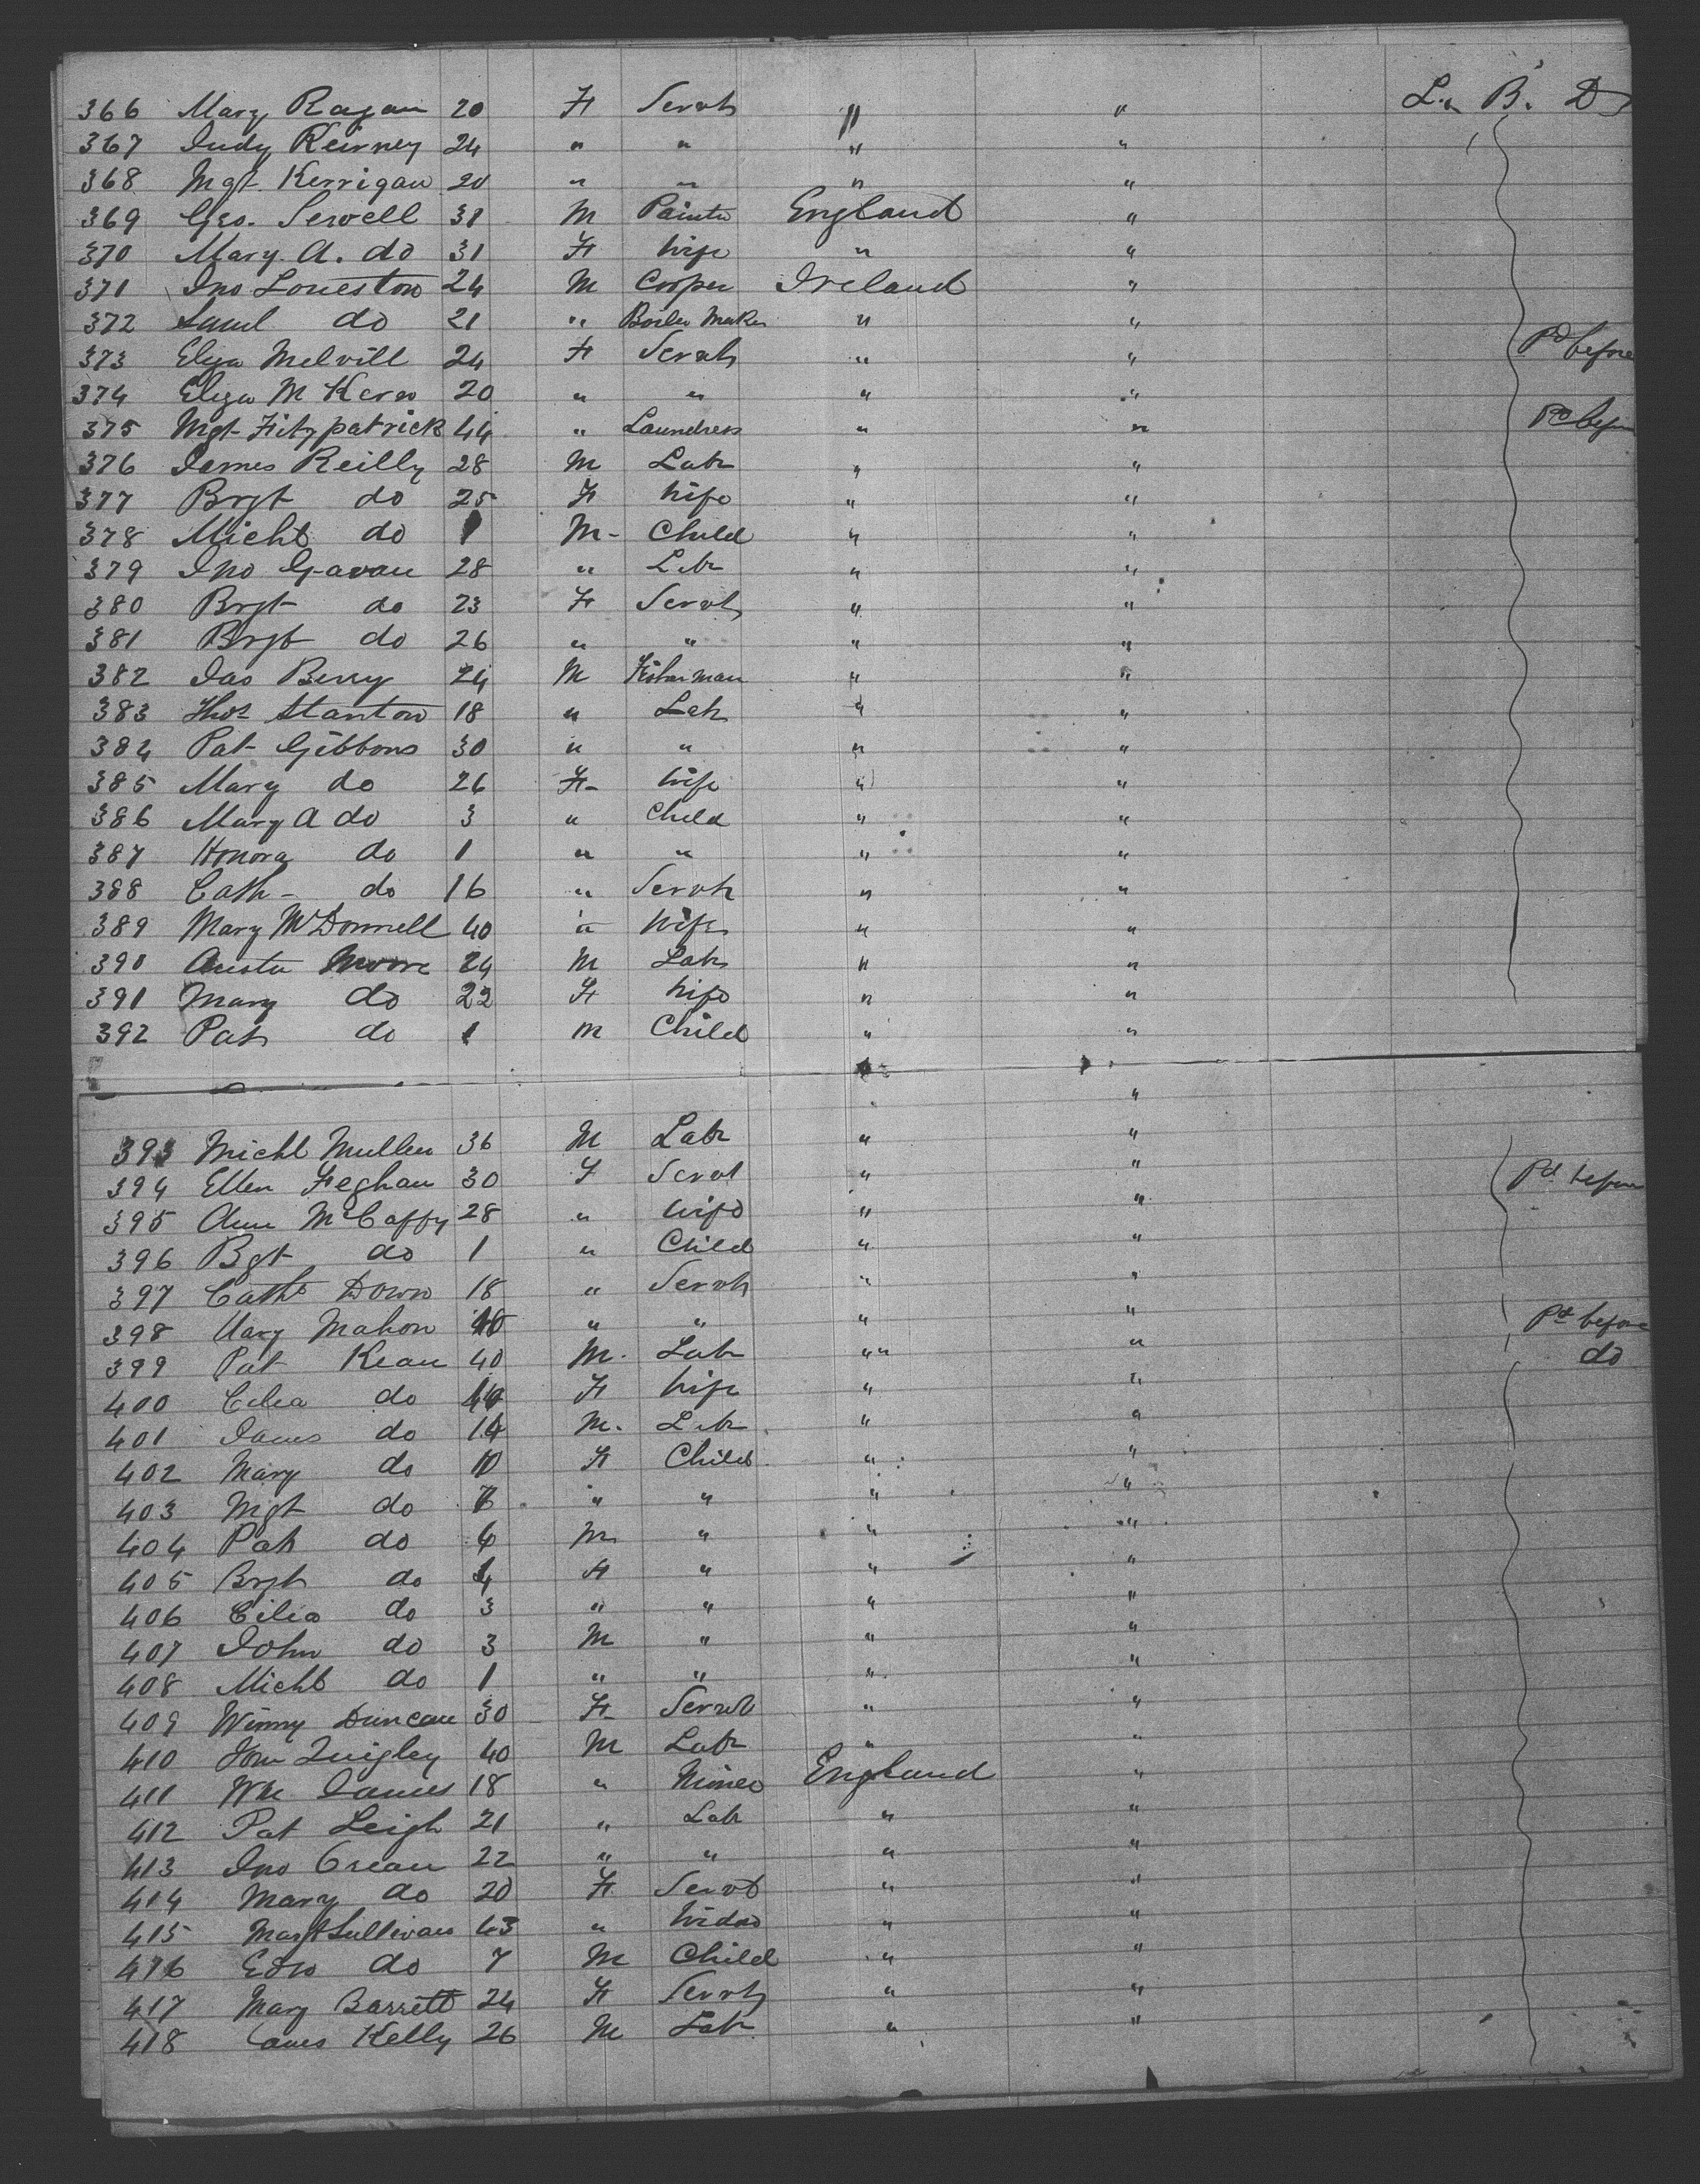 366 Mary Ragan 20 F Servt " " L. B. D
367 Judy Keirney 24 " " " "
368 Mgt Kerrigan 20 " " " "
369 Geo. Sewell 31 M Painter England "
370 Mary A. do 31 F Wife " "
371 Jno Loueston 24 M Cooper Ireland "
372 Saml do 21 " Boiler Maker " "
373 Eliza Melvill 24 F Servt " " Pd before
374 Eliza M Kern 20 " " " "
375 Mgt Fitzpatrick 44 " Laundress " " Pd before
376 James Reilly 28 M Labr " "
377 Brgt do 25 F Wife " "
378 Michl do 1 M- Child " "
379 Jno Gavan 28 " Labr " "
380 Brgt do 23 F Servt " "
381 Brgt do 26 " " " "
382 Jas Berry 24 M Fisherman " "
383 Thos Stanton 18 " Labr " "
384 Pat Gibbons 30 " " " "
385 Mary do 26 F- Wife " "
386 Mary A do 3 " Child " "
387 Honora do 1 " " " "
388 Cath- do 16 " Servt " "
389 Mary McDonnell 40 " Wife " "
390 Austin Moore 24 M Labr " "
391 Mary do 22 F Wife " "
392 Pat do 1 M Child " "
393 Michl Mullen 36 M Labr " "
394 Ellen Feghan 30 F Servt " " Pd before
395 Ann McCaffy 28 " Wife " "
396 Bgt do 1 " Child " "
397 Cath Down 18 " Servt " "
398 Mary Mahon " " " " Pd before
399 Pat Kean 40 M. Labr " " do
400 Celia do F Wife " "
401 James do 14 M. Labr " "
402 Mary do 10 F Child " "
403 Mgt do " " " "
404 Pat do 6 M " " "
405 Brgt do 4 F " " "
406 Cilia do 3 " " " "
407 John do 3 M " " "
408 Michl do 1 " " " "
409 Winny Duncan 30 F Servt " "
410 Tom Quigley 40 M Labr " "
411 Wm James 18 " Miner England "
412 Pat Leigh 21 " Labr " "
413 Jno Crean 22 " " " "
414 Mary do 20 F. Servt " "
415 Margt Sullivan 43 " Widow " "
416 Edw do 7 M Child " "
417 Mary Barrett 24 F Servt " "
418 James Kelly 26 M Labr " "